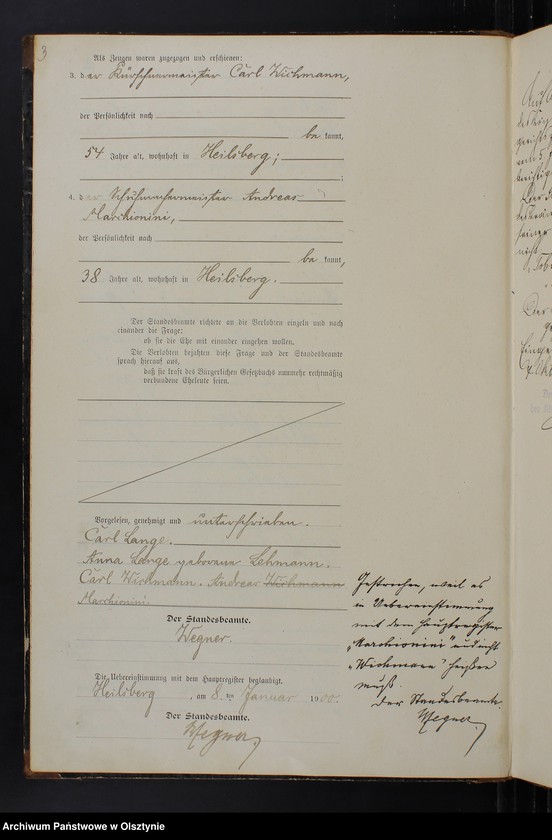 3
Als Zeugen waren zugezogen und erschienen:
3. der Kürschnermeister Carl Wichmann,
der Persönlichkeit nach
be kannt,
54 Jahre alt, wohnhaft in Heilsberg;
4. der Schuhmachermeister Andreas
Marchionini,
der Persönlichkeit nach
be kannt,
38 Jahre alt, wohnhaft in Heilsberg.
Der Standesbeamte richtete an die Verlobten einzeln und nach
einander die Frage:
ob sie die Ehe mit einander eingehen wollen.
Die Verlobten bejahten diese Frage und der Standesbeamte
sprach hierauf aus,
daß sie kraft des Bürgerlichen Gesetzbuchs nunmehr rechtmäßig
verbundene Eheleute seien.
Vorgelesen, genehmigt und unterschrieben.
Carl Lange.
Anna Lange geborene Lehmann.
Carl Wichmann. Andreas Wichmann
Marchionini.
Der Standesbeamte.
Wegner.
Die Uebereinstimmung mit dem Hauptregister beglaubigt.
Heilsberg, am 8. ten Januar 1900.
Der Standesbeamte.
Wegner
Gestrichen, weil es
in Uebereinstimmung
mit dem Hauptregister
„Marchionini" und nicht
„Wichmann" heißen
muß.
Der Standesbeamte.
Wegner
Archiwum Państwowe w Olsztynie